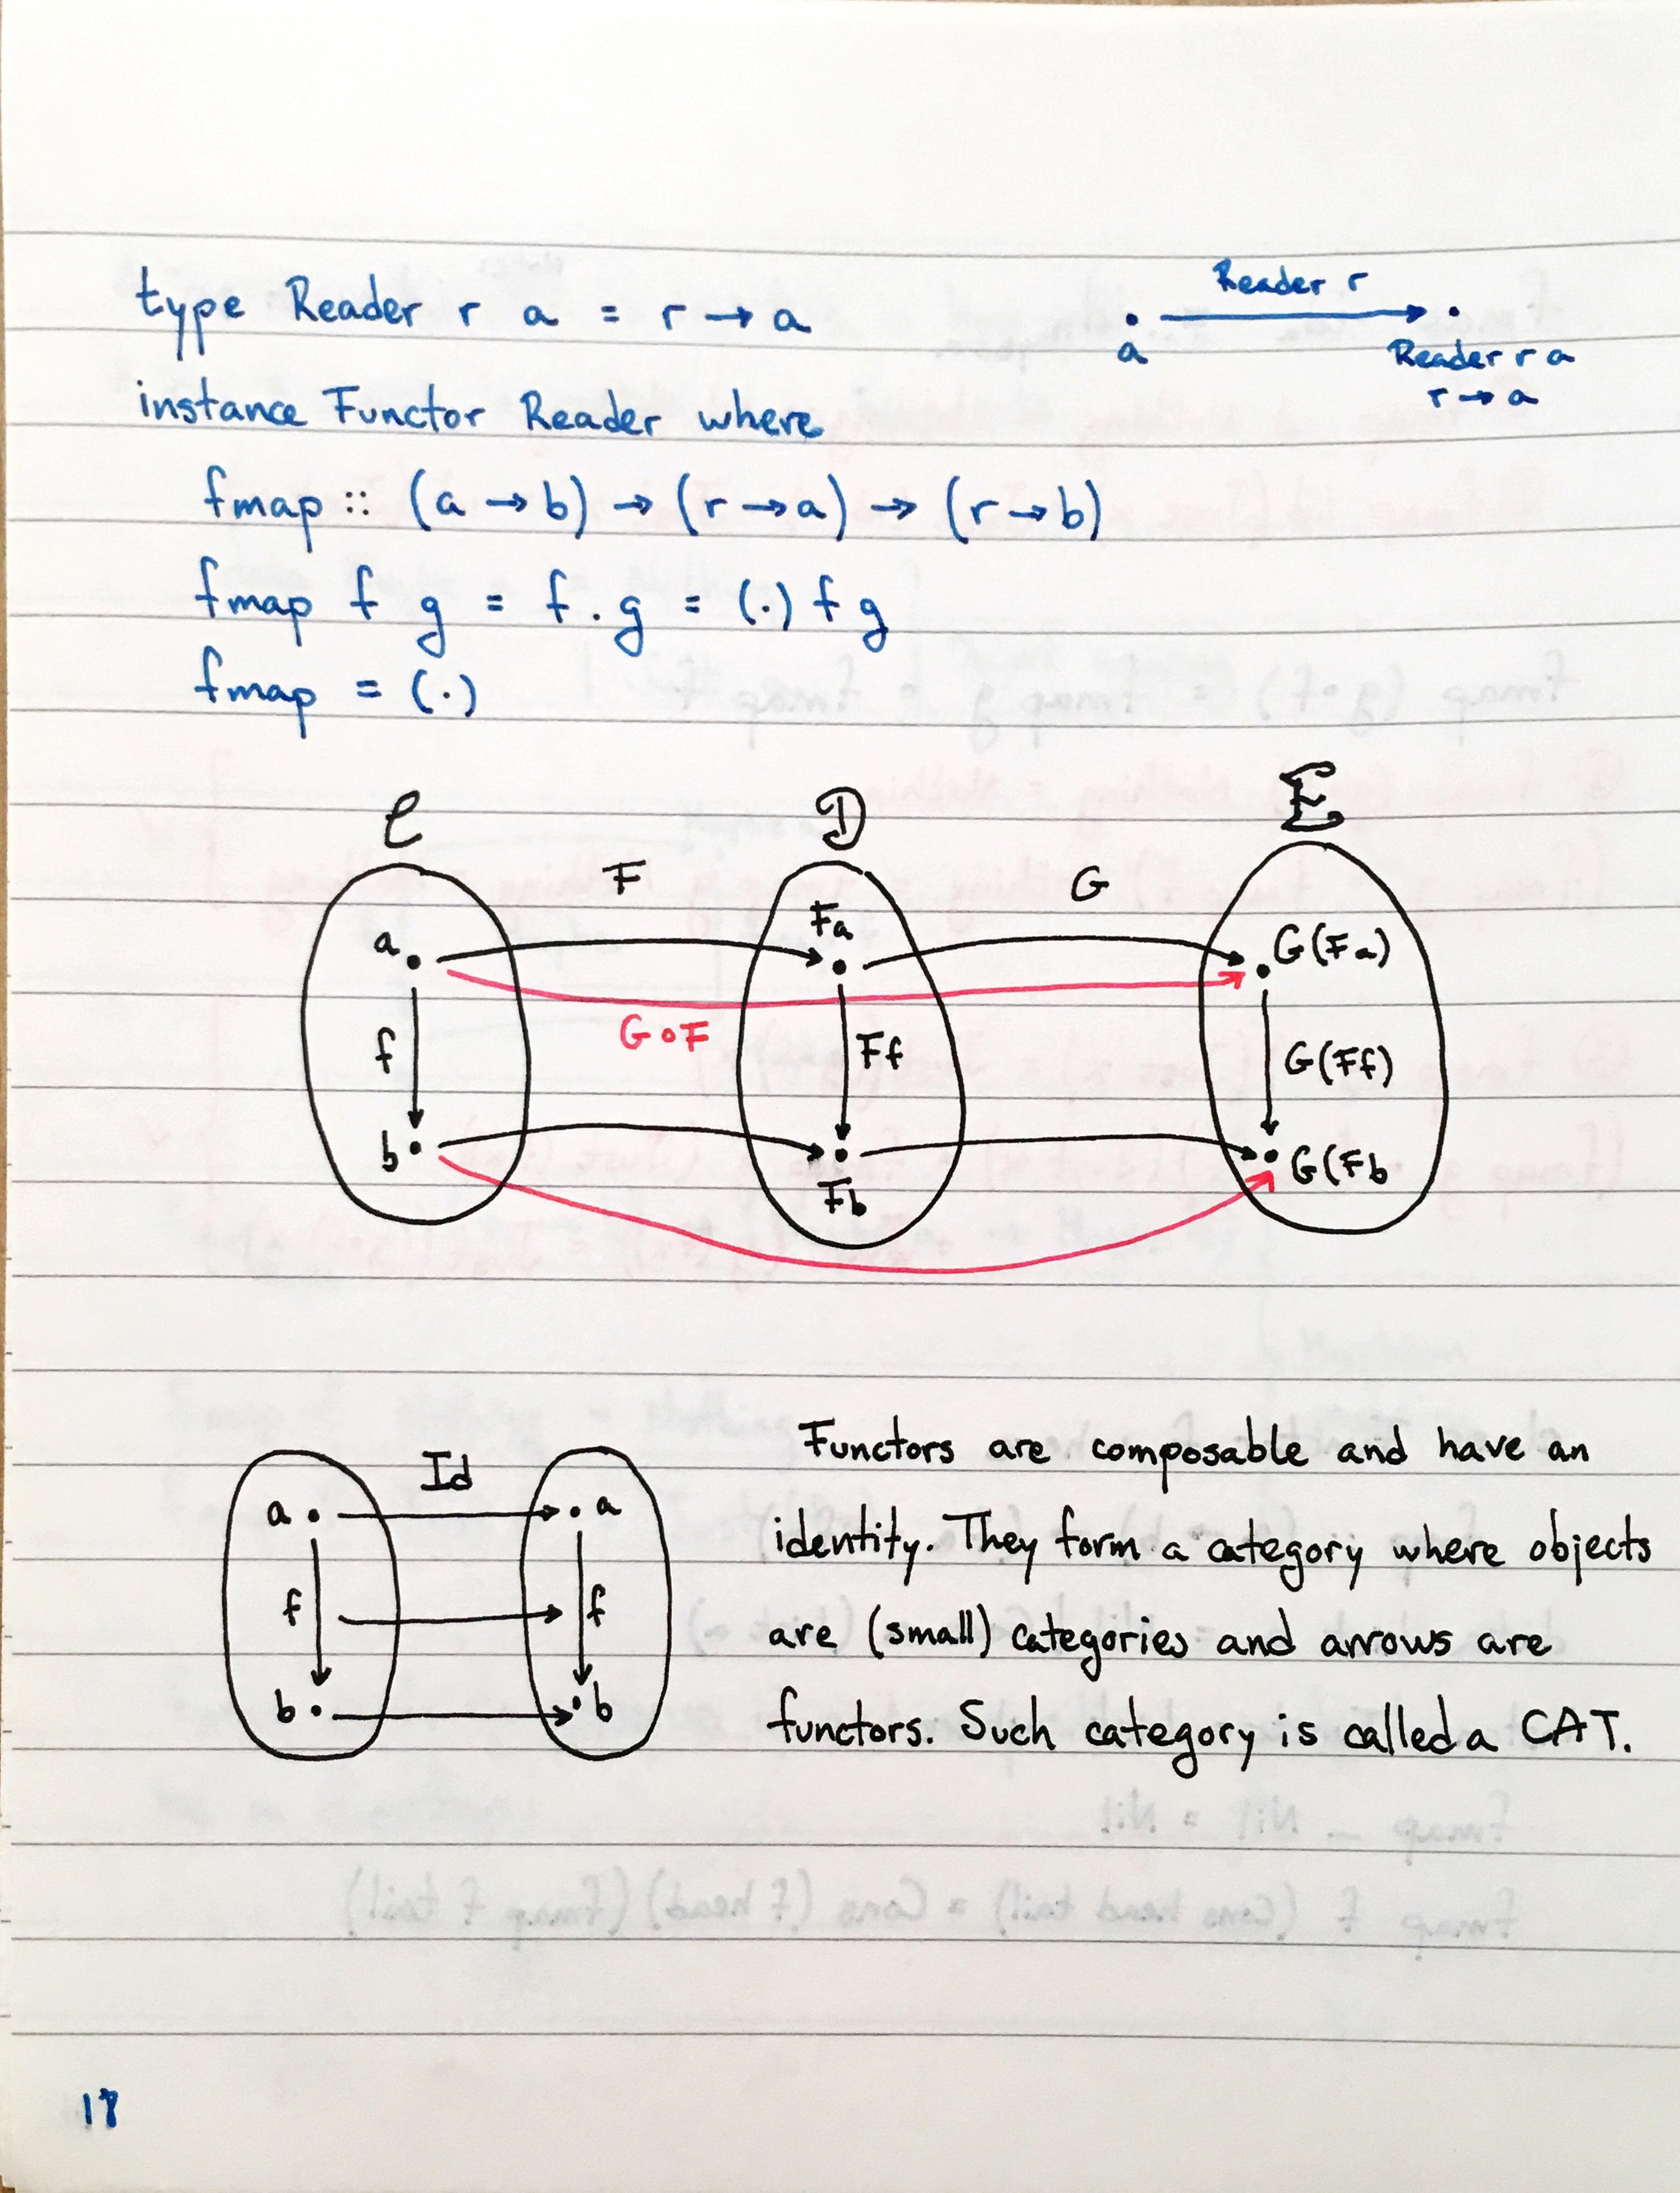 type Reader r a = r → a
Reader r
a
Reader r a
r → a
instance Functor Reader where
fmap :: (a → b) → (r → a) → (r → b)
fmap f g = f . g = (.) f g
fmap = (.)
C D E
F G
a Fa G(Fa)
G∘F
f Ff G(Ff)
b Fb G(Fb
Id
a a
f f
b b
Functors are composable and have an
identity. They form a category where objects
are (small) categories and arrows are
functors. Such category is called a CAT.